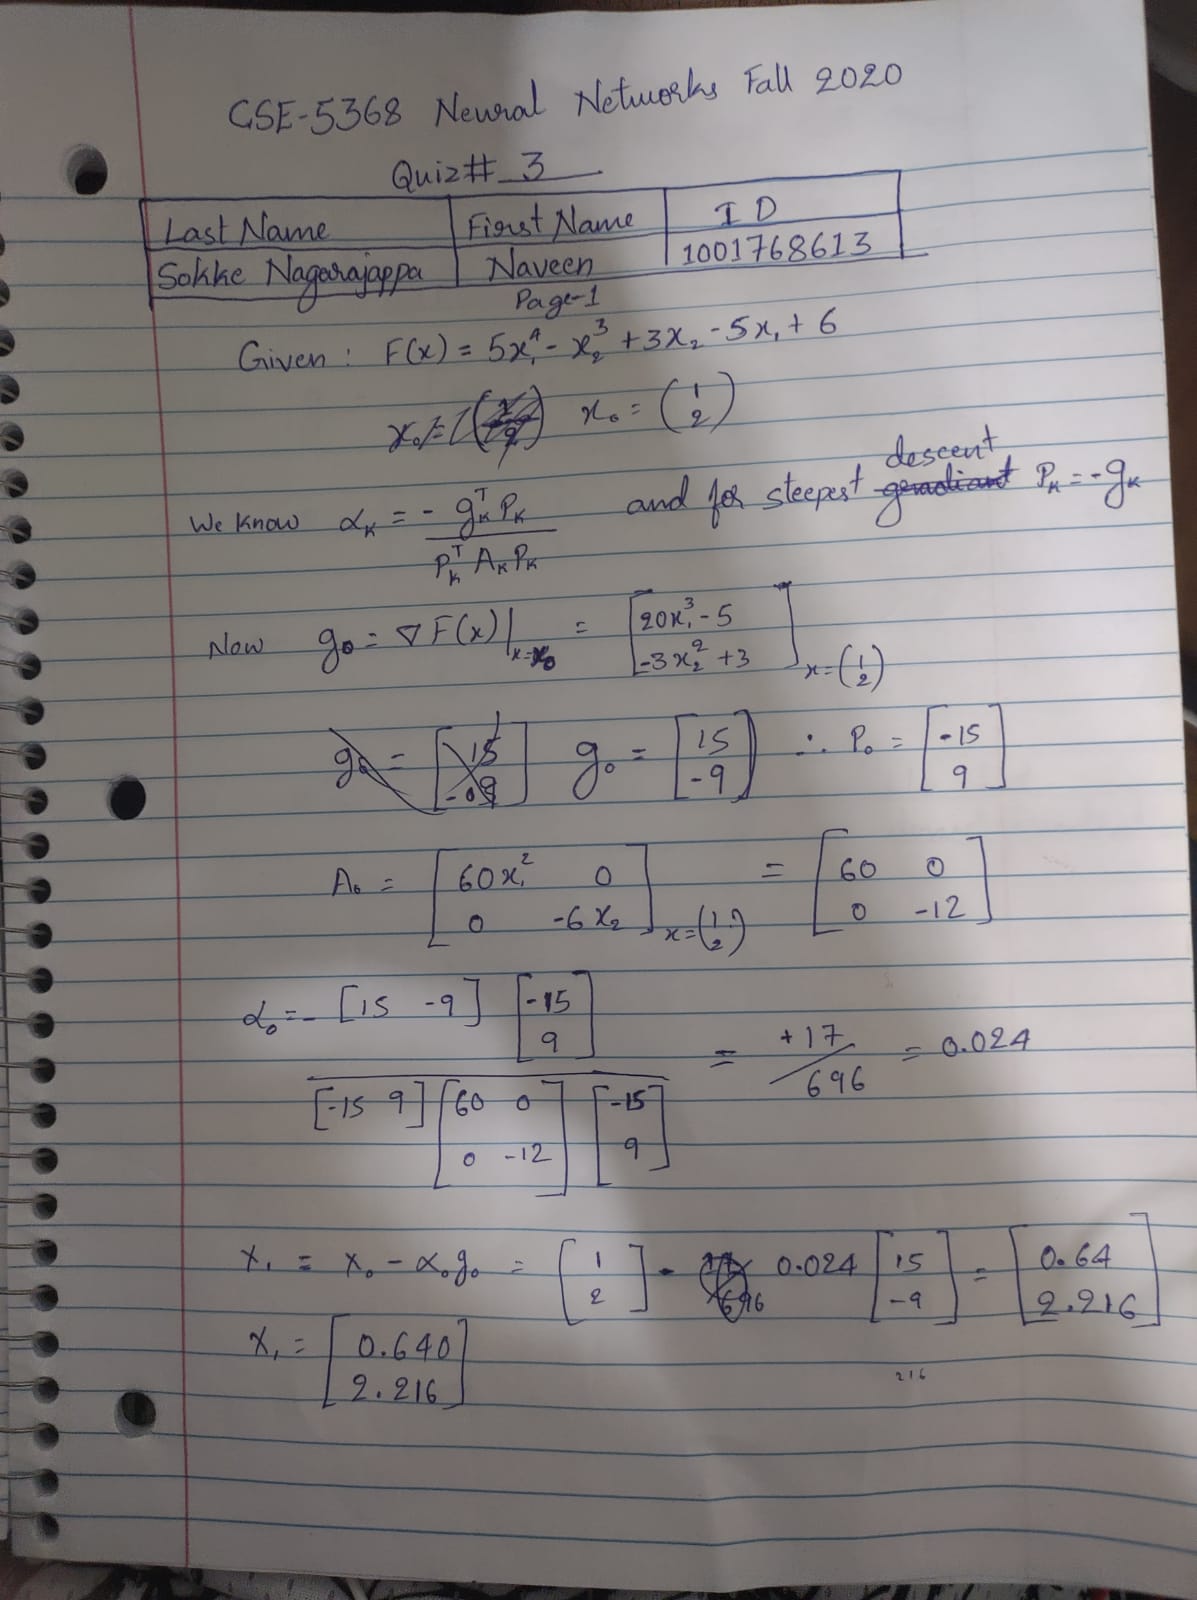 CSE-5368 Neural Networks Fall 2020
Quiz# 3
Last Name First Name ID
Sokke Nagarajappa Naveen 1001768613
Page-1
Given : F(x) = 5x₁⁴ - x₂³ + 3x₂ - 5x₁ + 6
x₀ = (1 2)
descent
We know αₖ = - gₖᵀ Pₖ / Pₖᵀ Aₖ Pₖ and for steepest Pₖ = - gₖ
Now g₀ = ∇F(x)|ₓ₌ₓ₀ = [20x₁³ - 5 -3x₂² + 3] x=(1 2)
g₀ = [15 -9] g₀ = [15 -9] ∴ P₀ = [-15 9]
A₀ = [60x₁² 0 0 -6x₂] x=(1 2) = [60 0 0 -12]
α₀ = - [15 -9] [-15 9] / [-15 9] [60 0 0 -12] [-15 9] = +17/696 = 0.024
x₁ = x₀ - α₀g₀ = [1 2] - 0.024 [15 -9] = [0.64 2.216]
x₁ = [0.640 2.216]
216